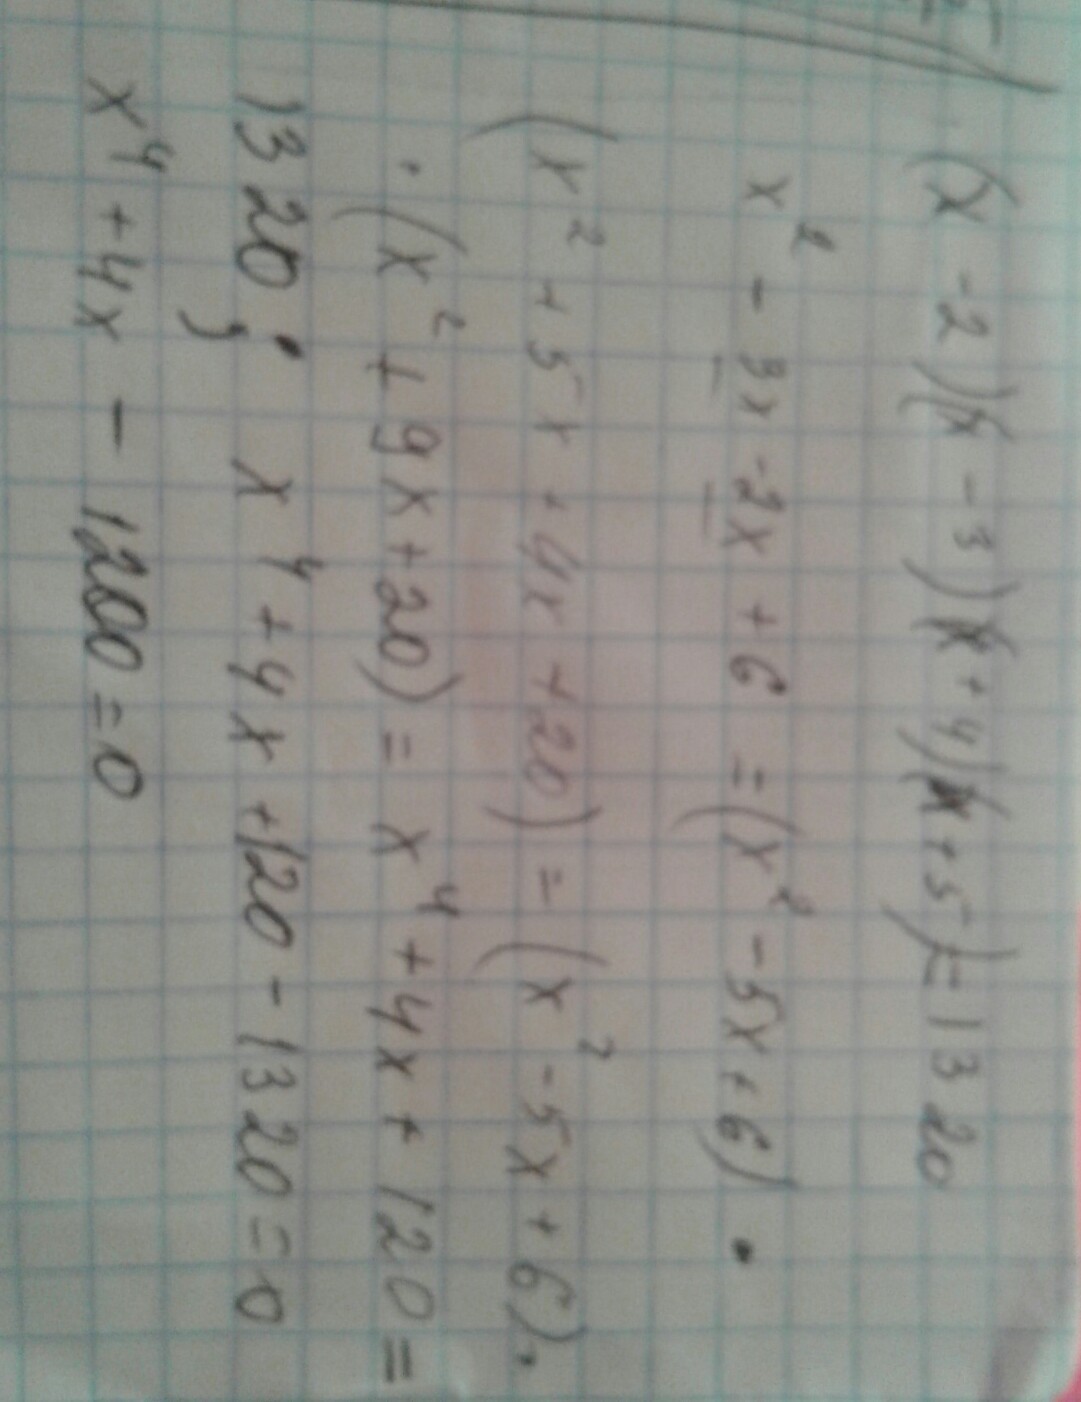 (x - 2)(x - 3)(x + 4)(x + 5) = 1320
x² - 3x - 2x + 6 = (x² - 5x + 6) ·
(x² + 5x + 4x + 20) = (x² - 5x + 6) ·
· (x² + 9x + 20) = x⁴ + 4x + 120 =
1320 ; x⁴ + 4x + 120 - 1320 = 0
x⁴ + 4x - 1200 = 0